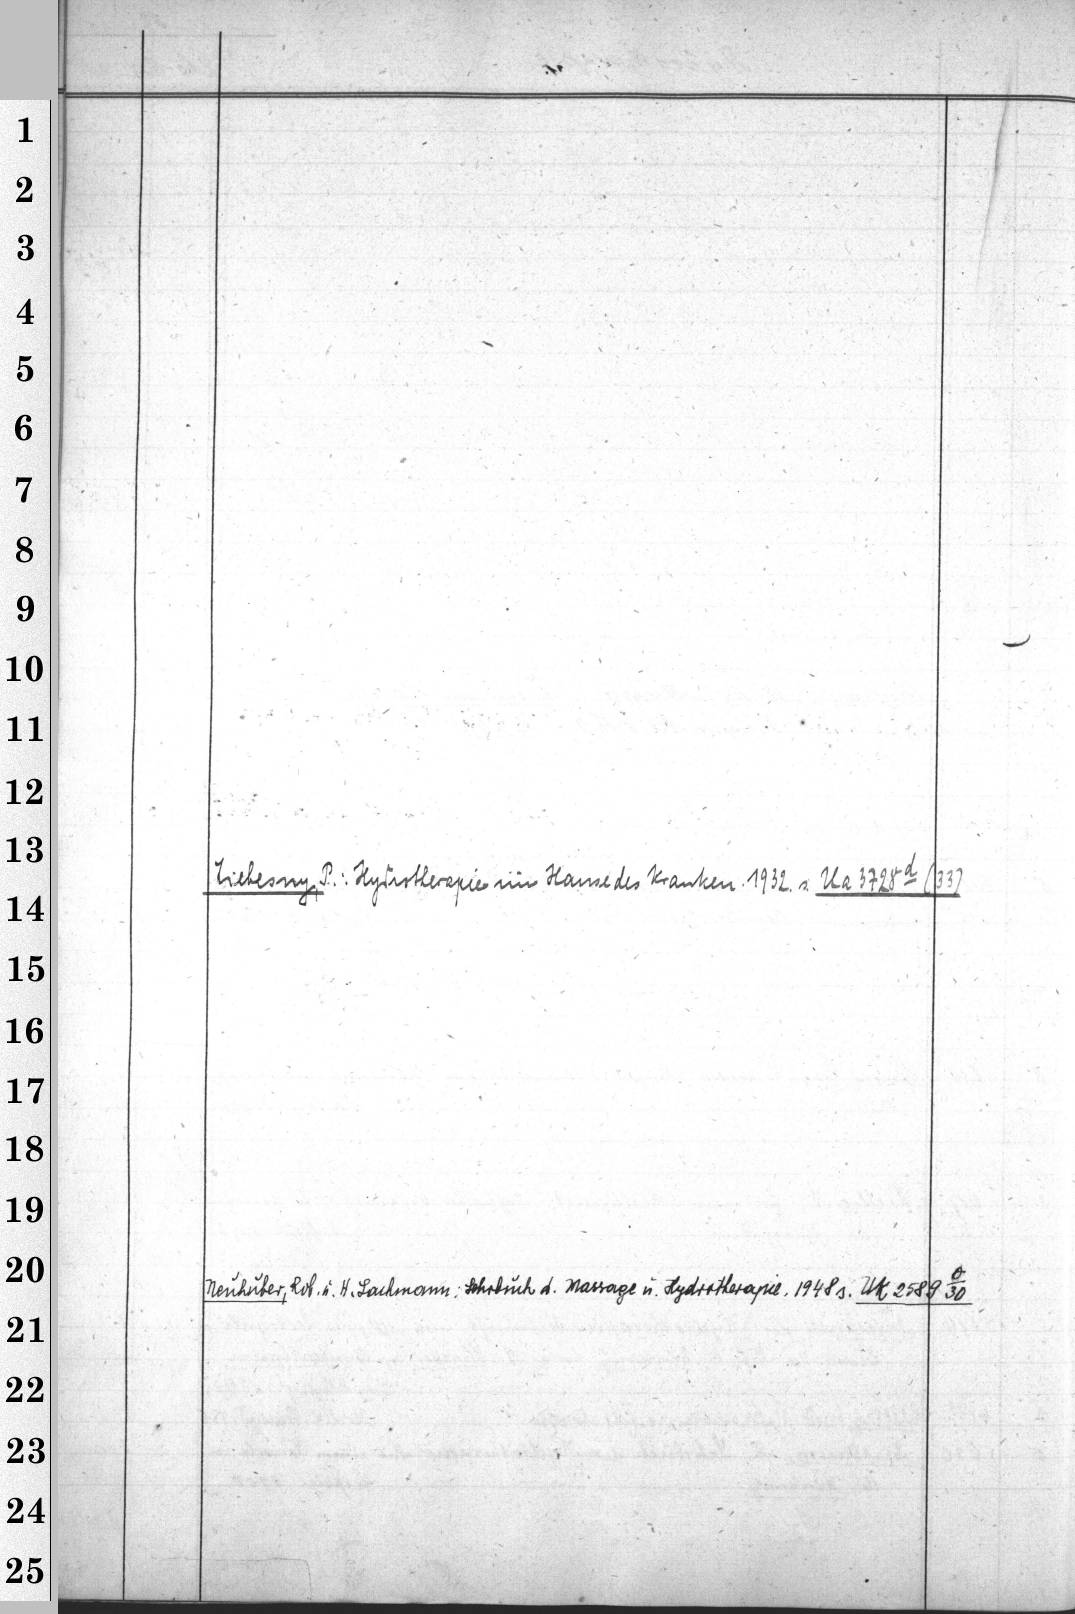 1
2
3
4
5
6
7
8
9
10
11
12
13
Liebesny, P.: Hydrotherapie im Hause des Kranken. 1932. s. Ua 3728 d (33)
14
15
16
17
18
19
20
Neuhuber, Rob. u. H. Lachmann: Lehrbuch d. Massage u. Hydrotherapie. 1948 s. Uk 2589 0/30
21
22
23
24
25